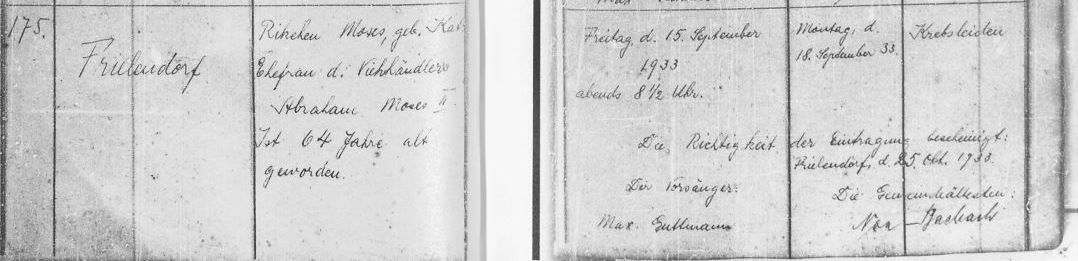 175.
Frielendorf
Rikchen Moses, geb. Kat
Ehefrau d. Viehhändlers
Abraham Moses II.
Ist 64 Jahre alt
geworden.
Freitag, d. 15. September
1933
abends 8 1/2 Uhr.
Montag, d.
18. September 33.
Krebsleiden
Die Richtigkeit der Eintragung bescheinigt:
Frielendorf, d. 25. Okt. 1933.
Der Vorsänger:
Die Gemeindeältesten:
Max Guttmann